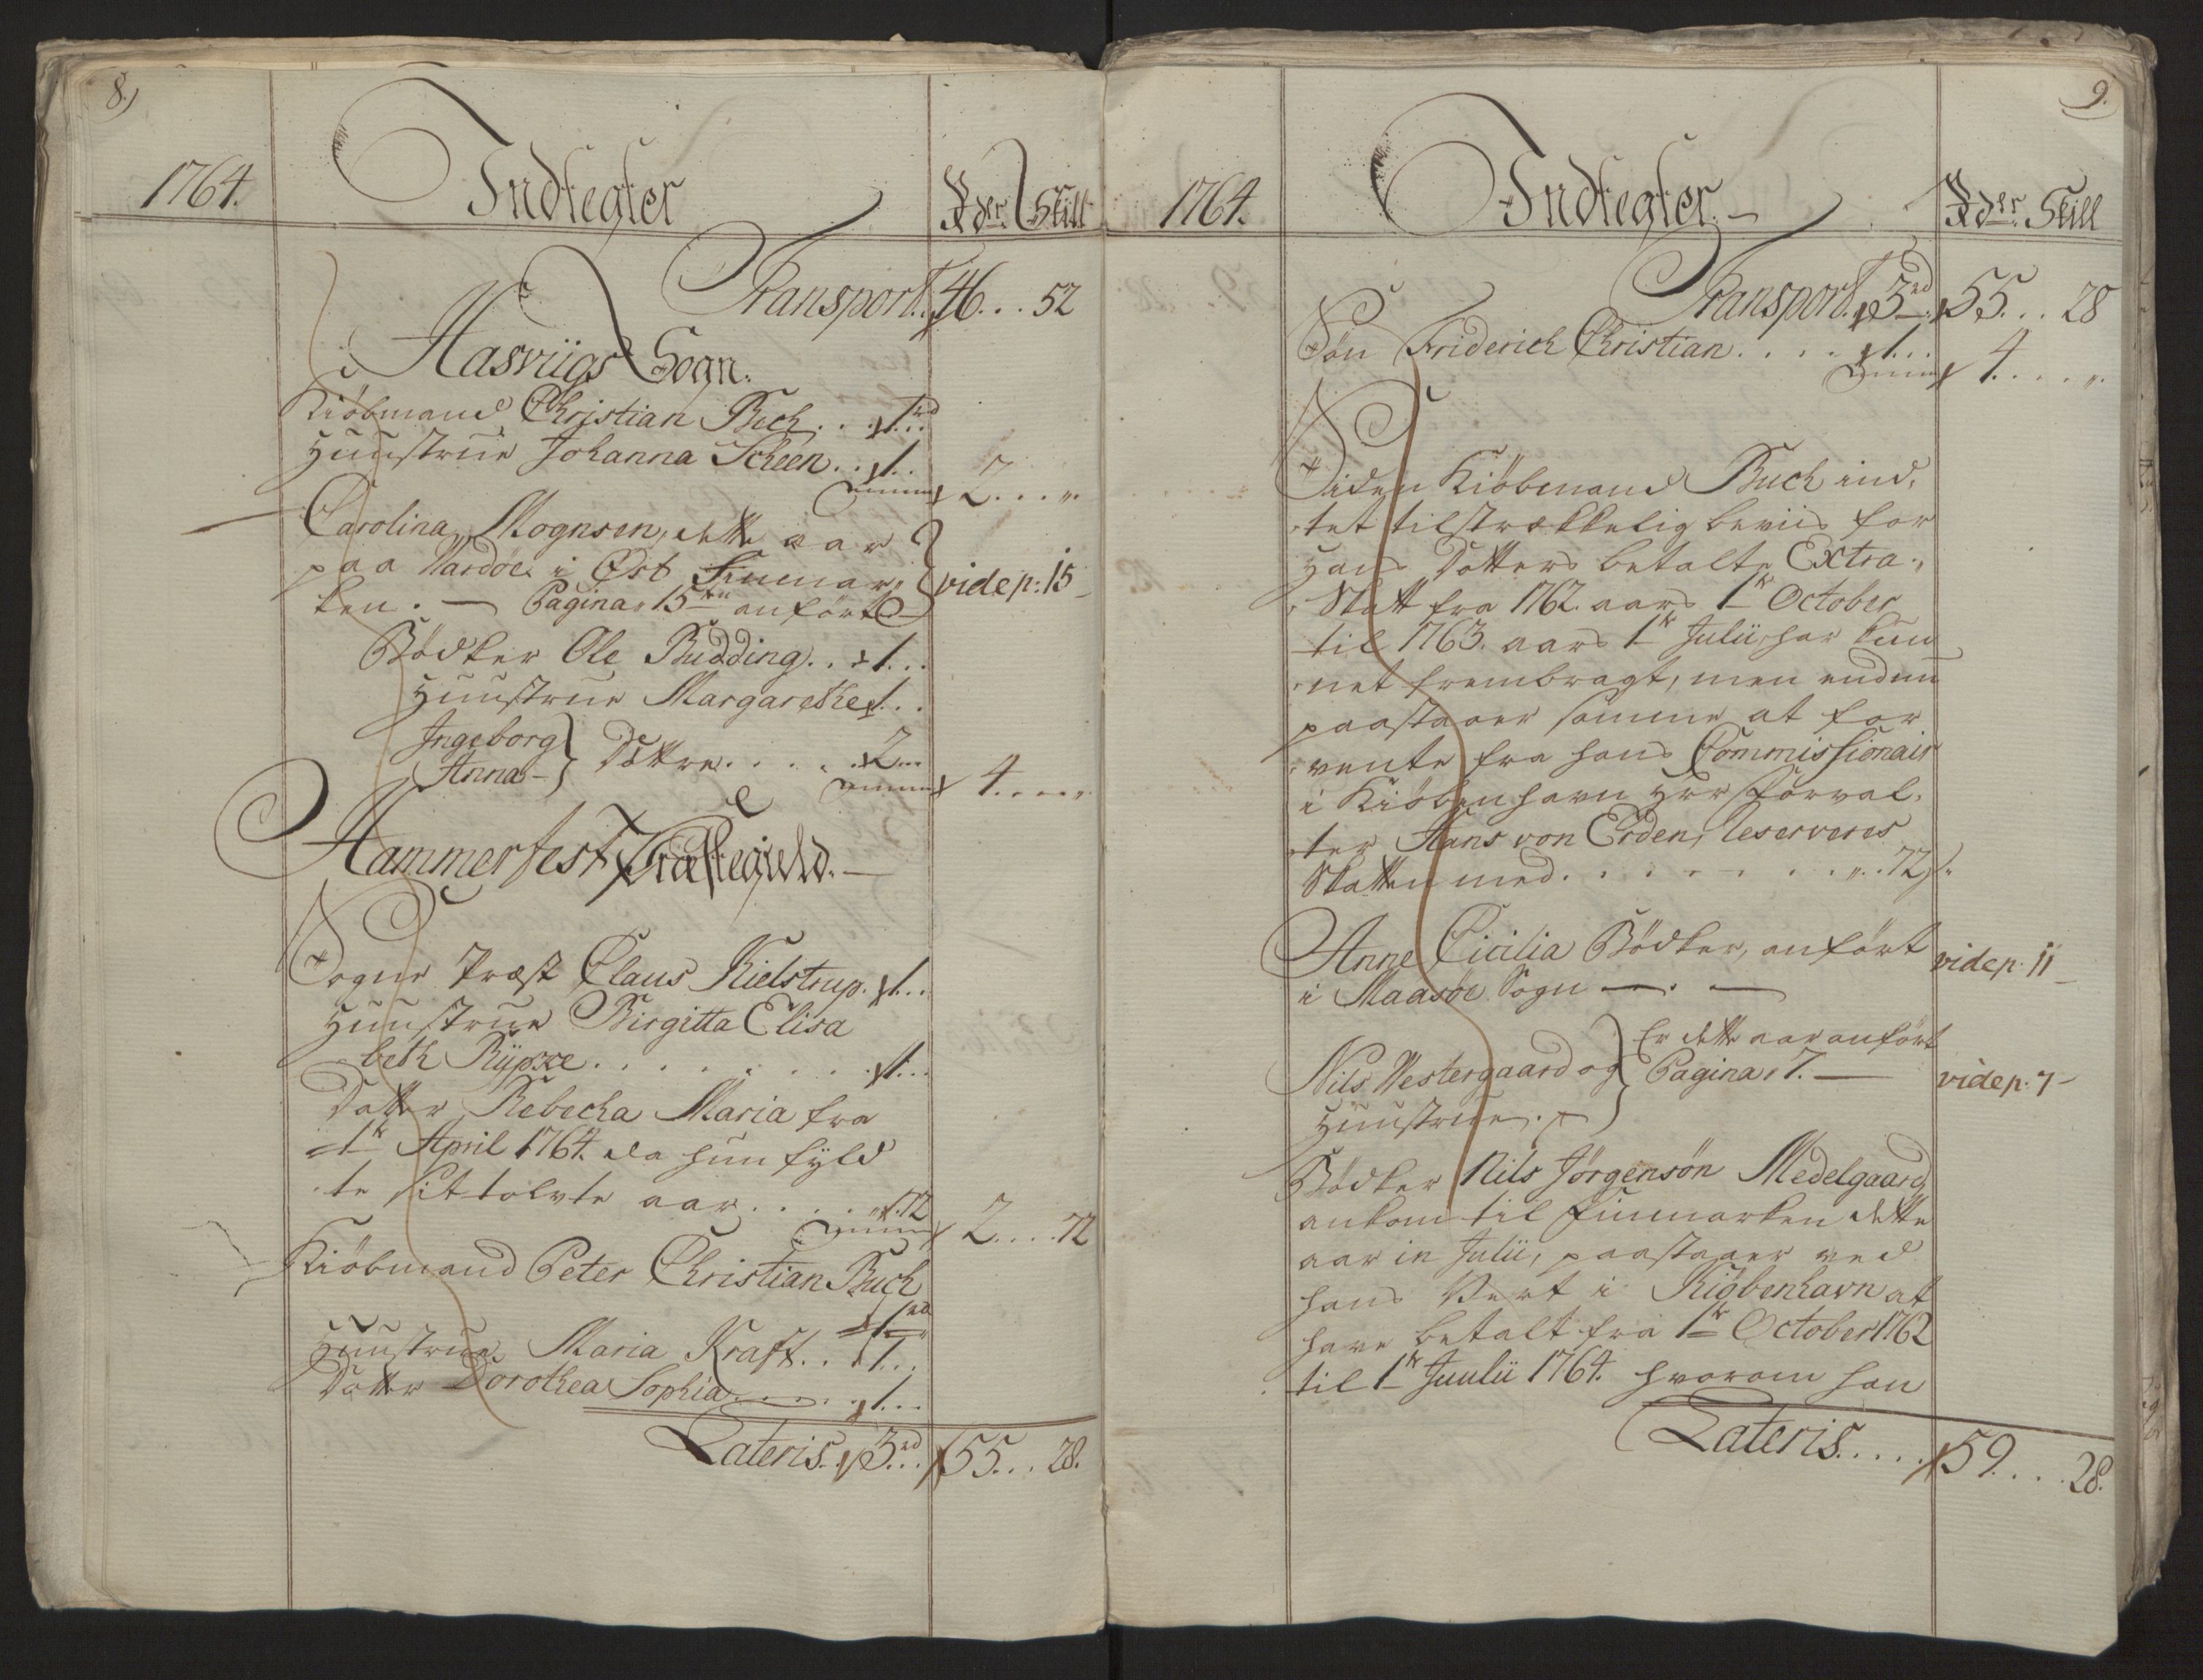 8.)
1764.
Indtegter
Rdr. Skill
Transport. 46... 52
Hasviigs Sogn.
Kiöbmand Christian Buch... 1rd
Huustrue Johanna Scheen.. 1..
2...„.
Carolina Mognsen, dette aar
paa Wardöe i Øst Finmar,
ken. — Pagina, 15de anfört —
vide p: 15
Bödker Ole Budding.. 1...
Huustrue Margarethe 1..
Ingeborg
Anna - } Döttre..... 2...
4....„
Hammerfest Præstegield. —
Sogne Præst Claus Kielstrup. 1...
Huustrue Birgitta Elisa
beth Rÿpze.......... 1...
Datter Rebecha Maria fra
1te April 1764. da hun fÿld
te sit tolvte aar.... „. 72
2.... 72
Kiöbmand Peter Christian Buch
1rd
Huustrue Maria Kraft... 1...
Datter Dorothea Sophia..... 1...
Lateris. 3rd. 55... 28.
9.
1764.
Indtegter. —
Rdr. Skill
Transport. 3rd. 55... 28
Sön Friderich Christian.... 1...
4....„.
Siden Kiöbmand Buch ind,
tet tilstrækkelig beviis for
Hans Dotters betalte Extra,
Skatt fra 1762. aars 1te October
til 1763. aars 1te Julii, har kun
net frembragt, men endnu
paastaaer samme at for
vente fra hans Commissionair
i Kiöbenhavn Hrr Forval,
ter Hans von Erden, reserveres
Skatten med.......... „. 72 s.
Anne Cicilia Bödker, anfört
i Maasöe Sogn —. —
vide p. 11
Nils Westergaard og
Huustrue.
Er dette aar anfört
Pagina, 7. —
vide p. 7 -
Bödker Nils Jörgensön Medelgaard
ankom til Finmarken dette
aar in Julii, paastaaer ved
hans Vert i Kiöbenhavn at
have betalt fra 1te October 1762
til 1te Juulii 1764. hvorom han
Lateris.... 59.... 28.